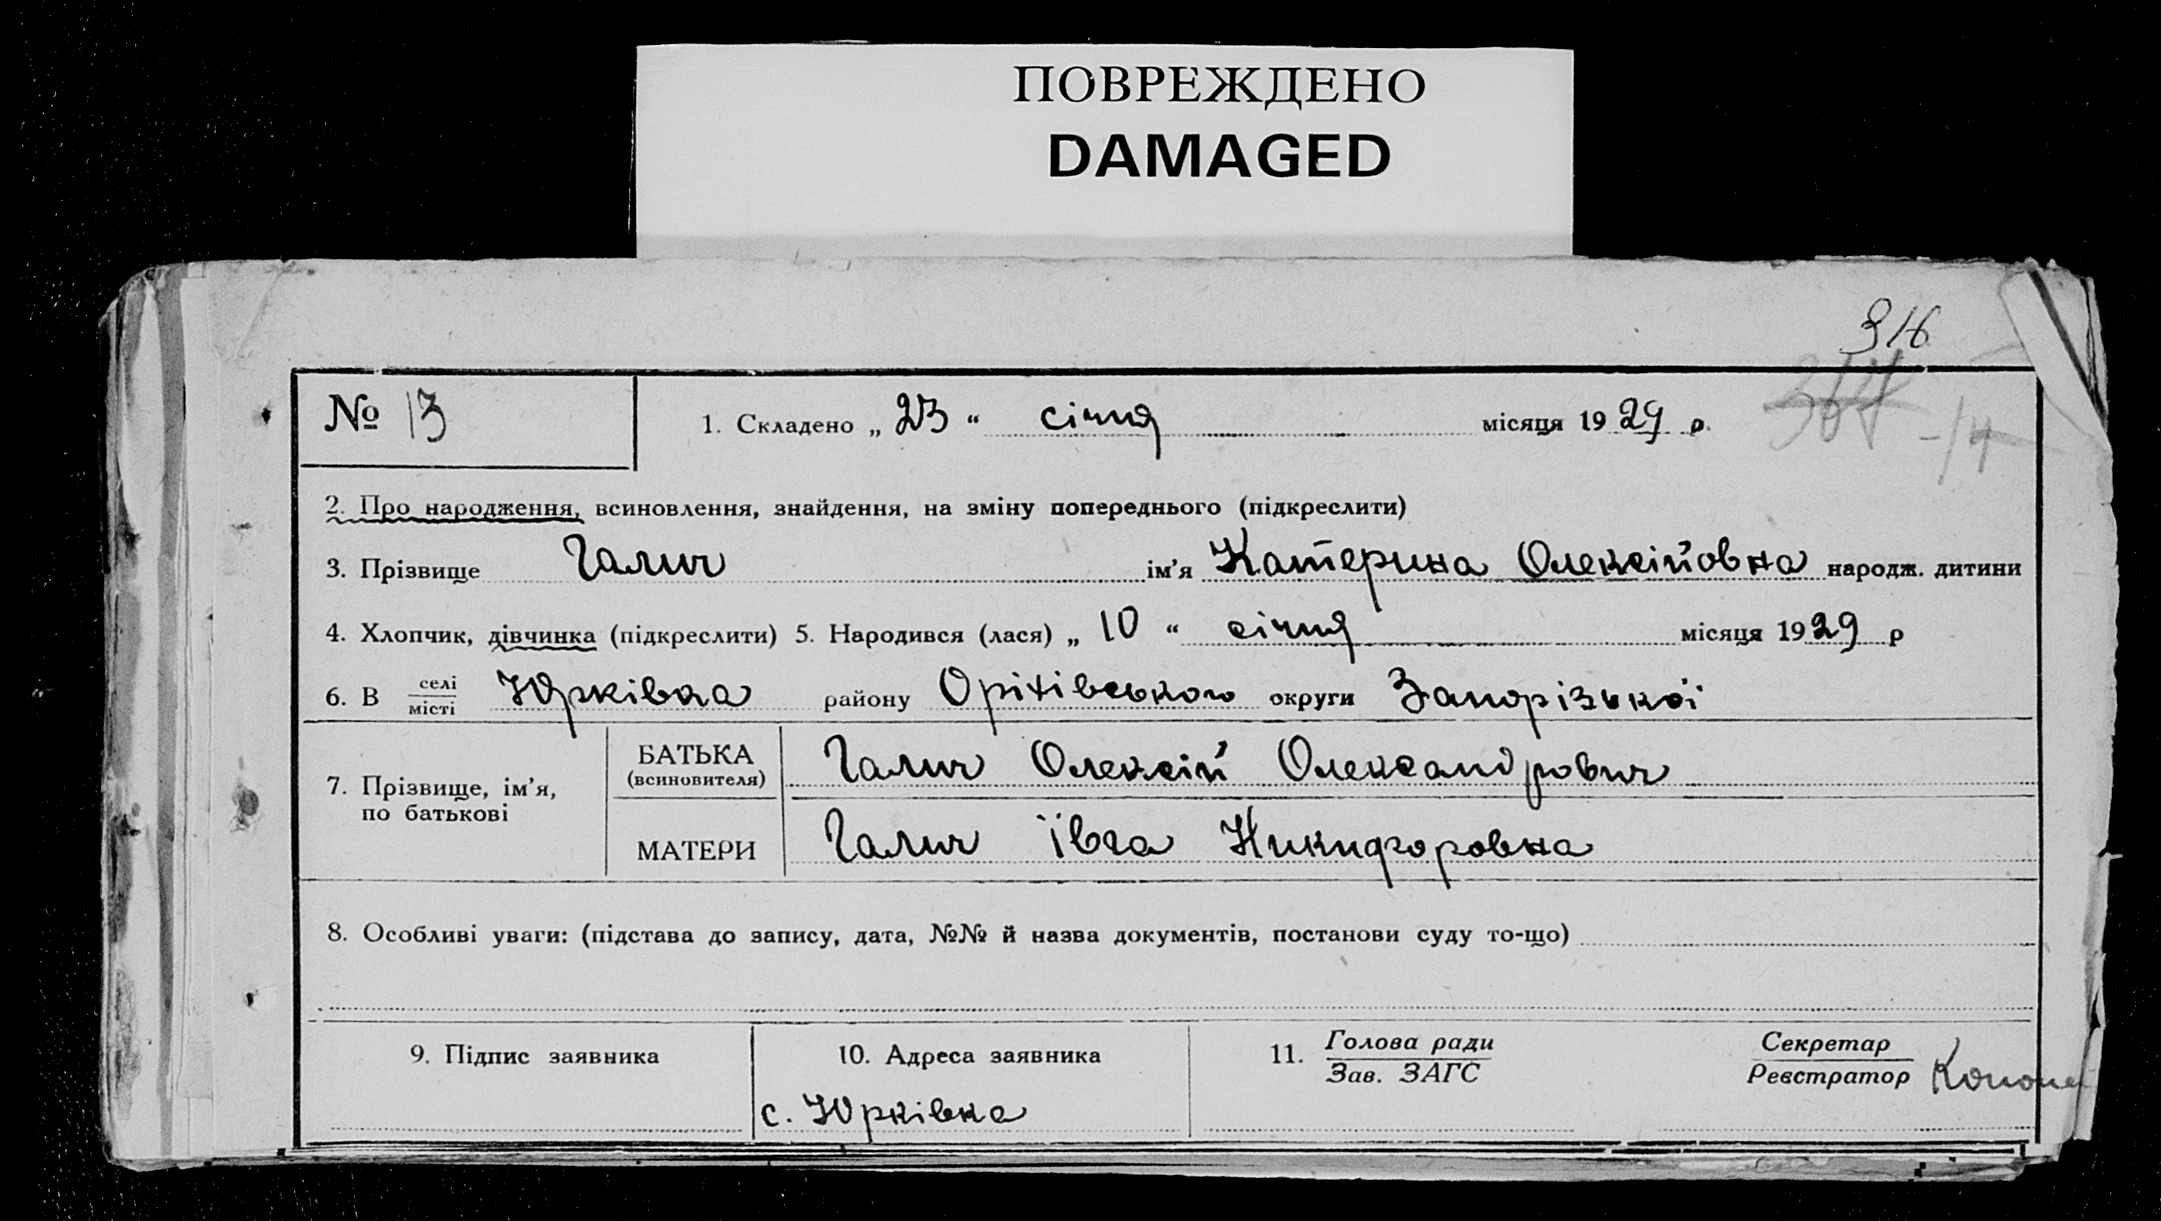 ПОВРЕЖДЕНО
DAMAGED
316
364 -14
№ 13
1. Складено „ 23 “ січня місяця 1929 р.
2. Про народження, всиновлення, знайдення, на зміну попереднього (підкреслити)
3. Прізвище Галич ім'я Катерина Олексійовна народж. дитини
4. Хлопчик, дівчинка (підкреслити) 5. Народився (лася) „ 10 “ січня місяця 1929 р
6. В селі місті Юрківка району Оріхівського округи Запорізької
7. Прізвище, ім'я, по батькові
БАТЬКА
(всиновителя)
Галич Олексій Олександрович
МАТЕРИ
Галич Ївга Никифоровна
8. Особливі уваги: (підстава до запису, дата, №№ й назва документів, постанови суду то-що)
9. Підпис заявника
10. Адреса заявника
с. Юрківка
11. Голова ради
Зав. ЗАГС
Секретар
Реєстратор